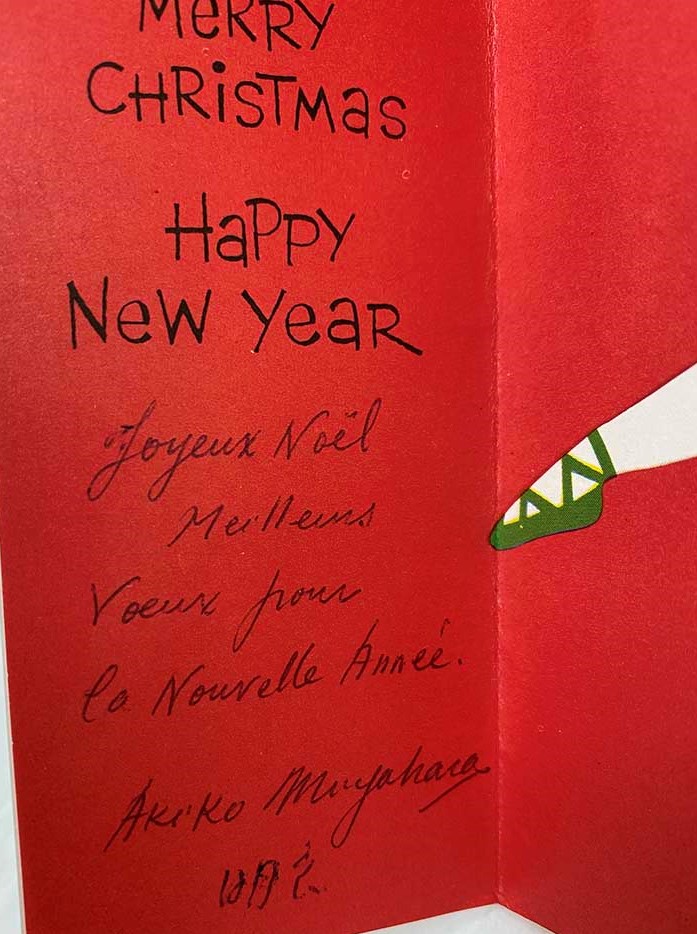 MeRRY
CHRiSTMaS
HaPPY
New Year
Joyeux Noël
Meilleurs
Voeux pour
la Nouvelle Année.
Akiko Miyahara